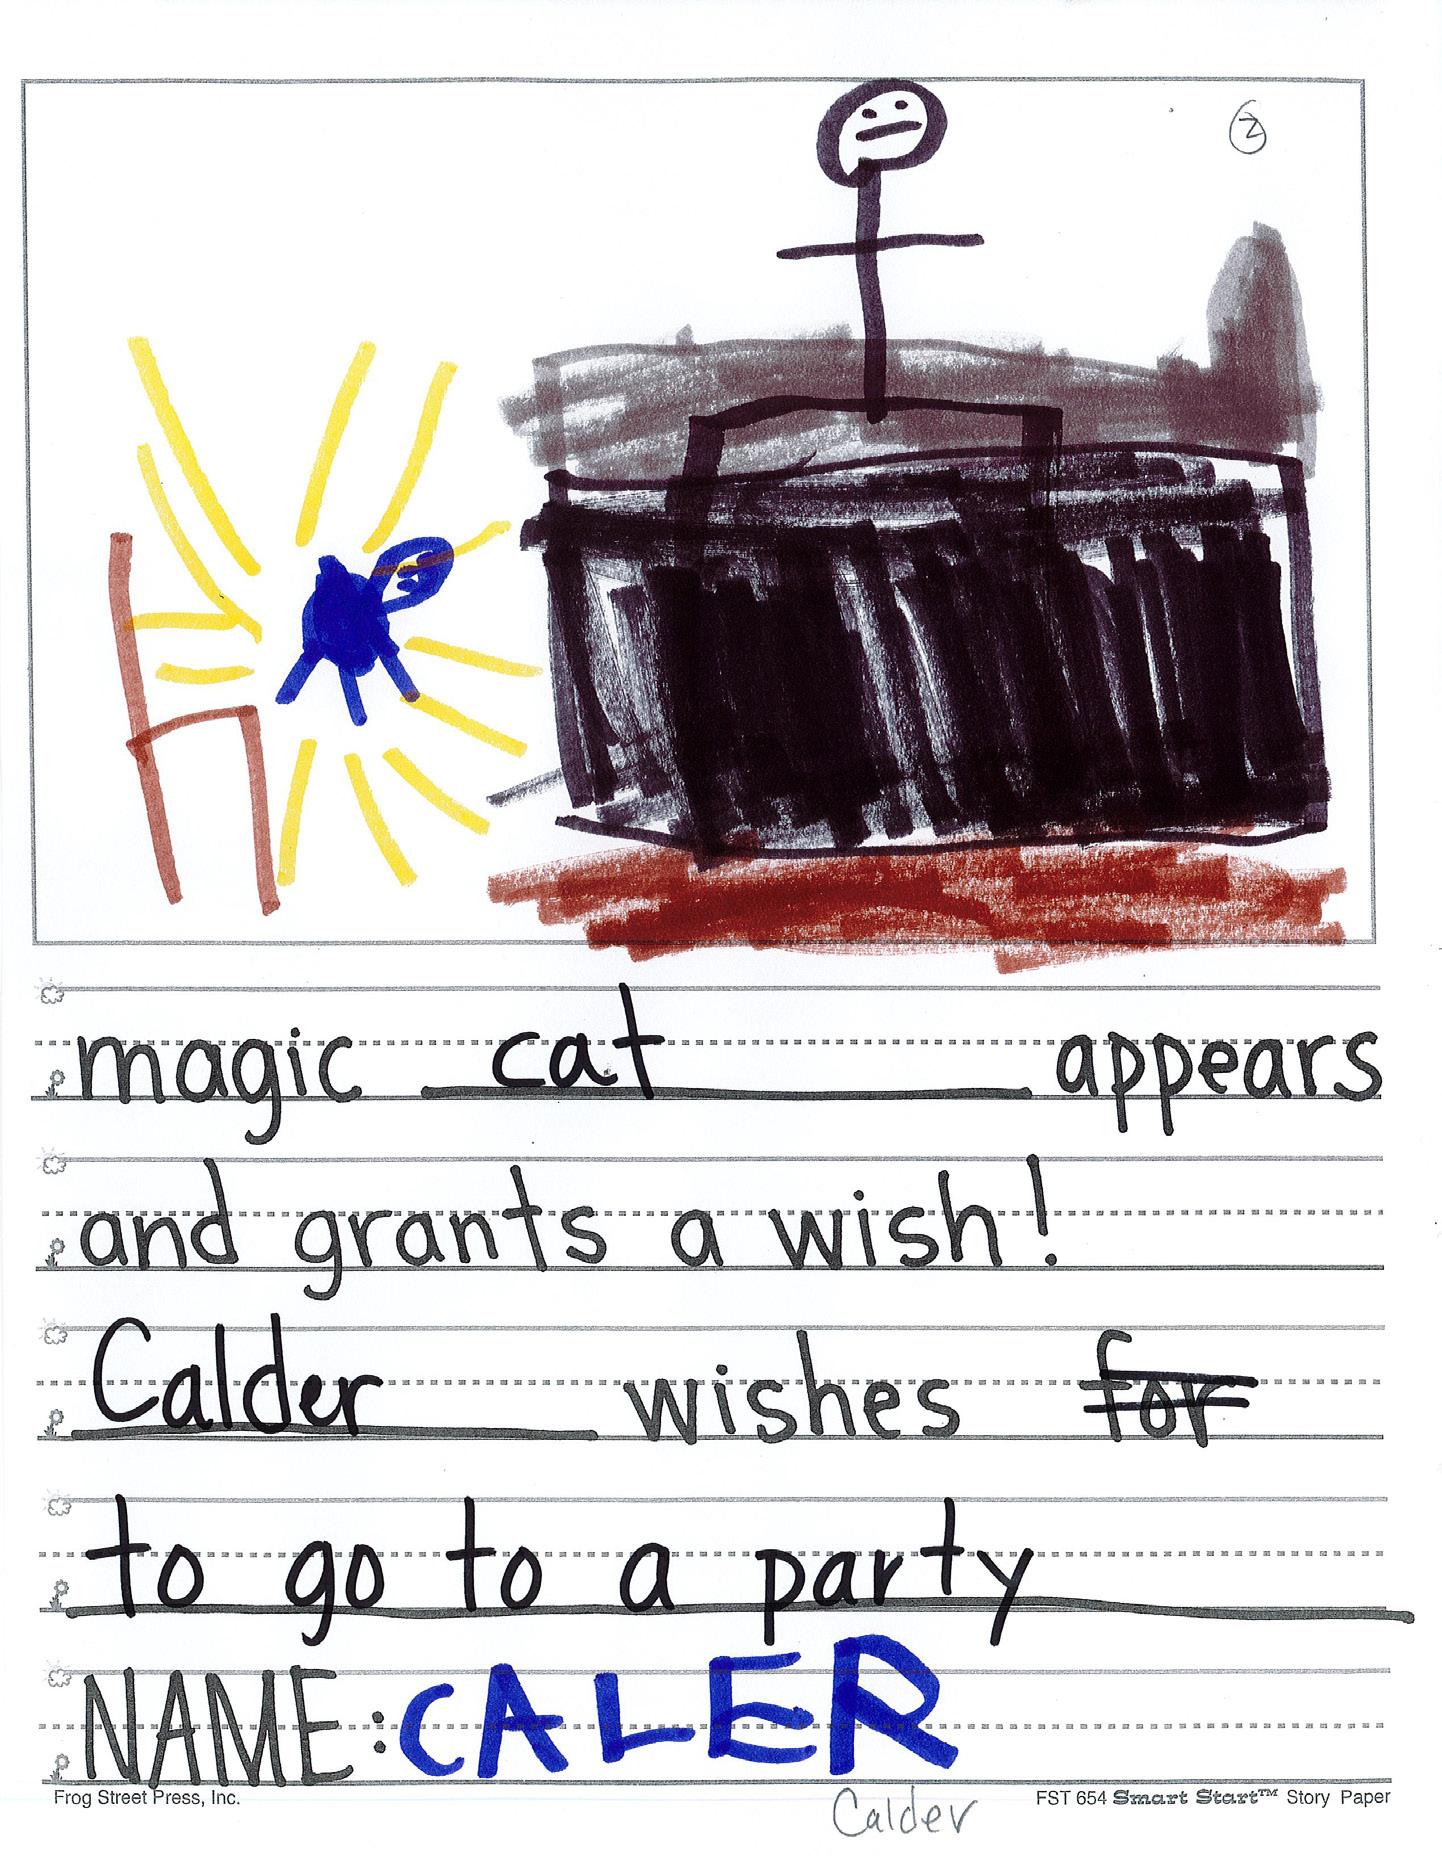 2
magic cat appears
and grants a wish!
Calder wishes for
to go to a party
NAME: CALER
Frog Street Press, Inc. FST 654 Smart Start™ Story Paper
Calder